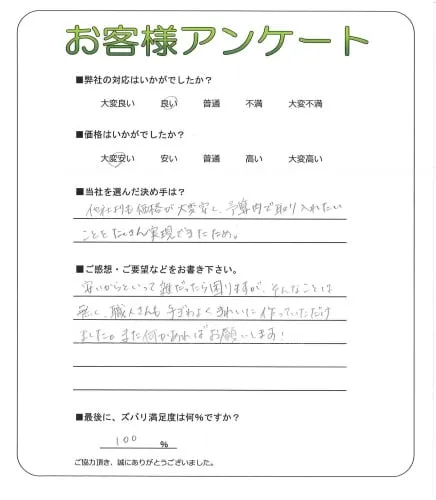 お客様アンケート
■弊社の対応はいかがでしたか?
大変良い 良い 普通 不満 大変不満
■価格はいかがでしたか?
大変安い 安い 普通 高い 大変高い
■当社を選んだ決め手は?
他社よりも価格が大変安く、予算内で取り入れたい
ことをたくさん実現できたため。
■ご感想・ご要望などをお書き下さい。
安いからといって雑だったら困りますが、そんなことは
無く、職人さんも手ぎわよくきれいに作っていただけ
ました。また何かあればお願いします!
■最後に、ズバリ満足度は何%ですか?
100 %
ご協力頂き、誠にありがとうございました。